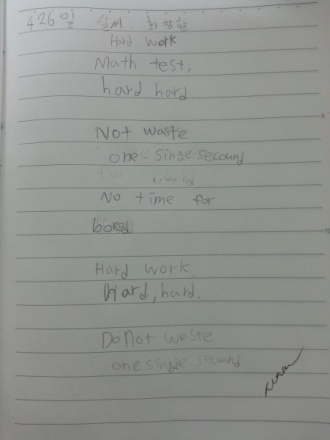 426일 날씨: 화창함
Hard work
Math test,
hard hard
Not waste
one singe second
No time for
bored
Hard work.
Hard, hard.
Do Not waste
one single second